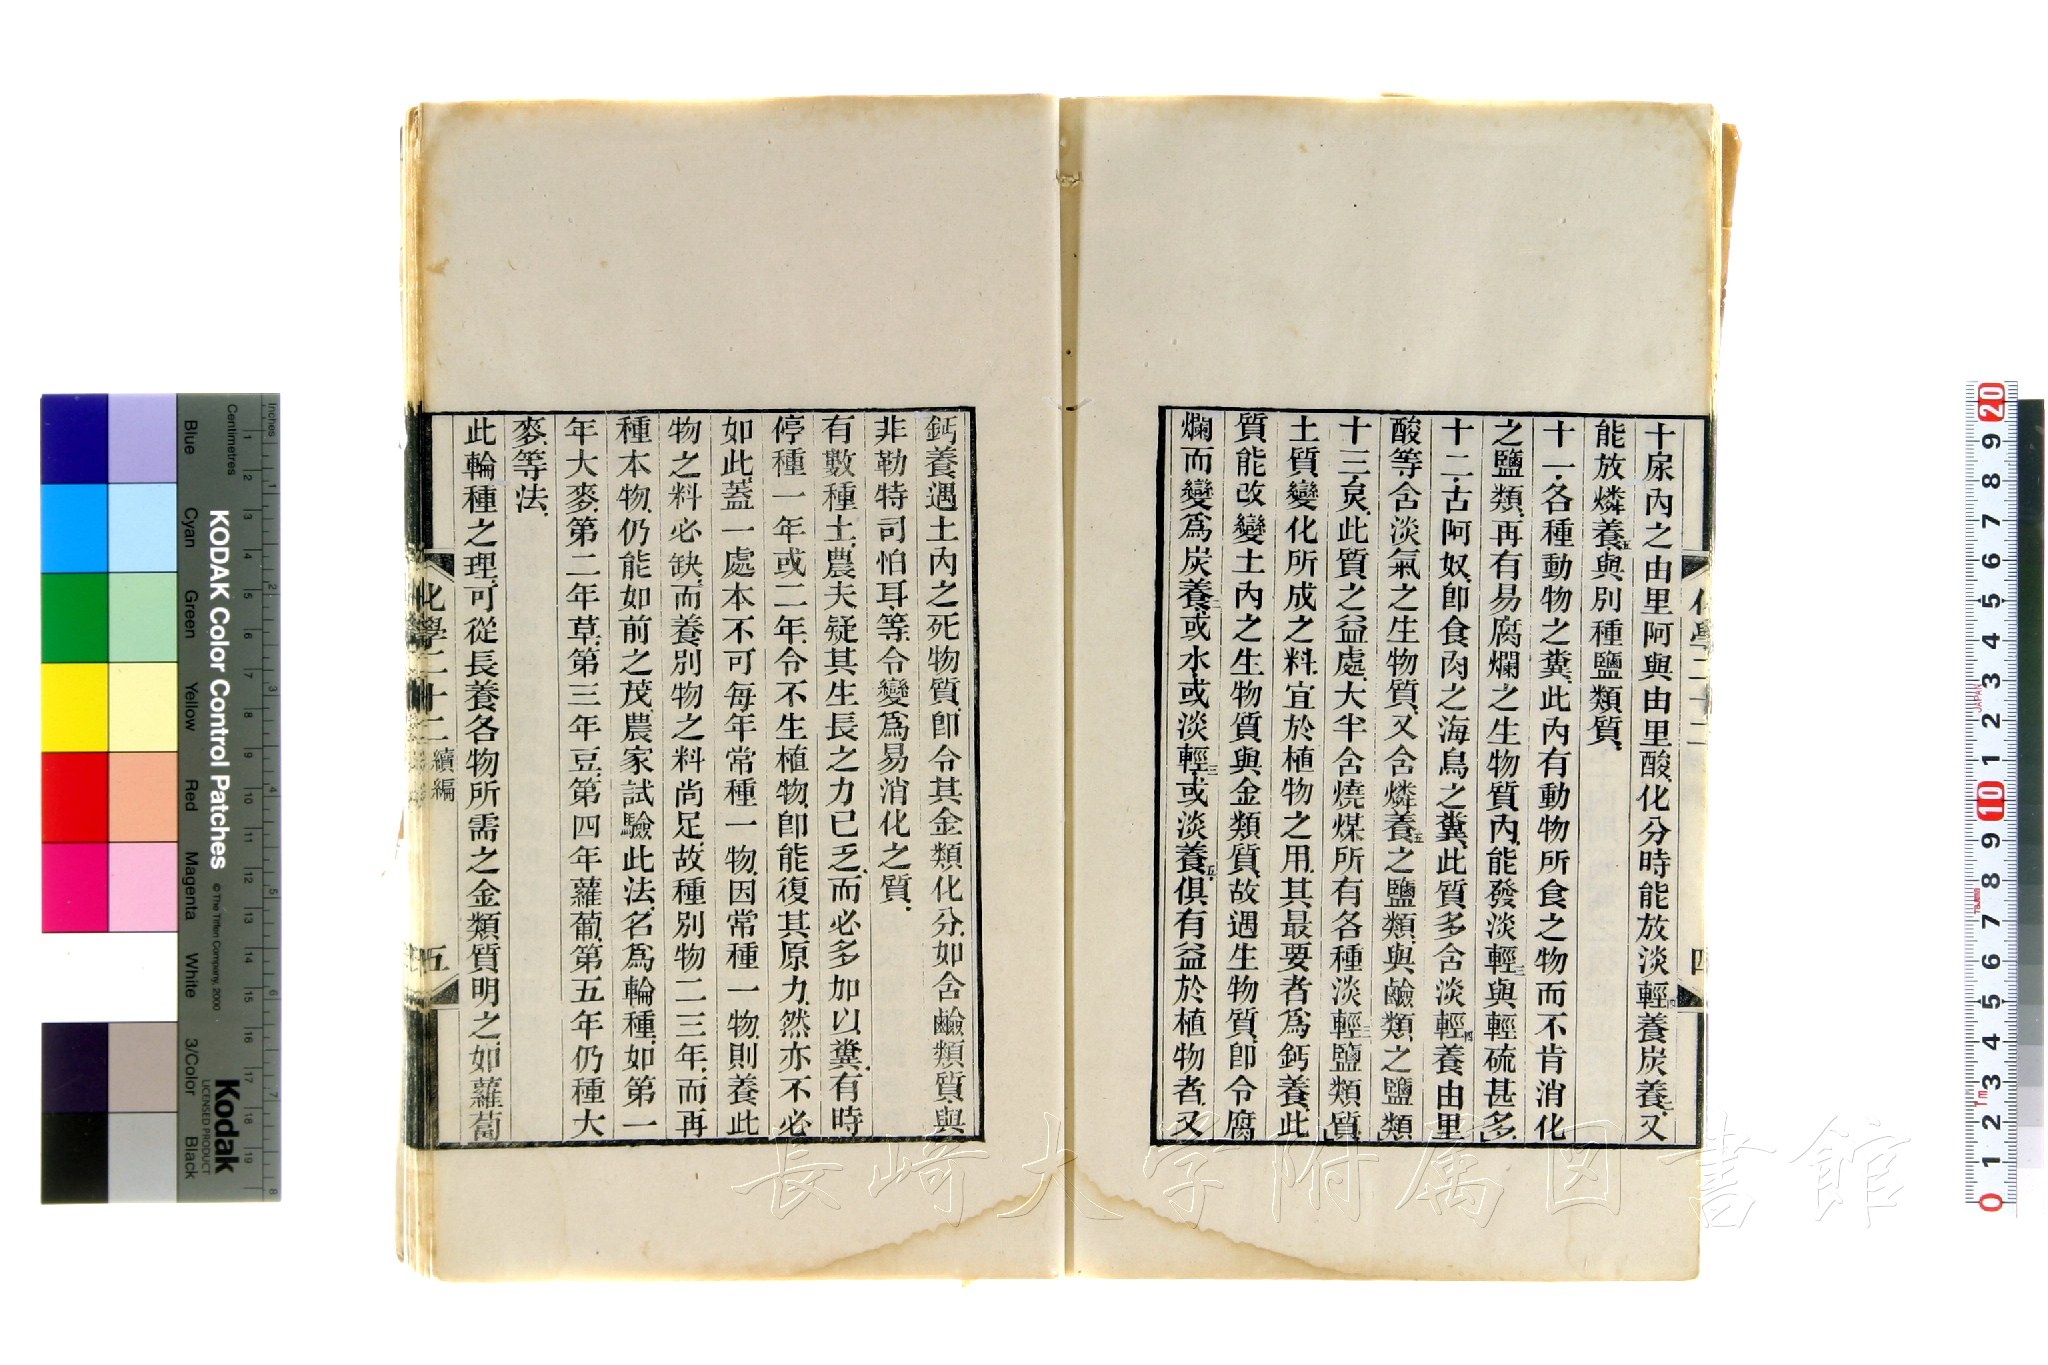 十尿內之由里阿與由里酸化分時能放淡輕四養炭養二又
能放燐養五與別種鹽類質
十一各種動物之糞此內有動物所食之物而不肯消化
之鹽類再有易腐爛之生物質內能發淡輕三與輕硫甚多
十二古阿奴卽食肉之海鳥之糞此質多含淡輕四養由里
酸等含淡氣之生物質又含燐養五之鹽類與鹼類之鹽類
十三炱此質之益處大半含燒煤所有各種淡輕三鹽類質
土質變化所成之料宜於植物之用其最要者爲鈣養此
質能改變土內之生物質與金類質故遇生物質卽令腐
爛而變爲炭養二或水或淡輕三或淡養五俱有益於植物者又
化學二十二
四
鈣養遇土內之死物質卽令其金類化分如含鹼類質與
非勒特司怕耳等令變爲易消化之質
有數種土農夫疑其生長之力已乏而必多加以糞有時
停種一年或二年令不生植物卽能復其原力然亦不必
如此蓋一處本不可每年常種一物因常種一物則養此
物之料必缺而養別物之料尚足故種別物二三年而再
種本物仍能如前之茂農家試驗此法名爲輪種如第一
年大麥第二年草第三年豆第四年蘿蔔第五年仍種大
麥等法
此輪種之理可從長養各物所需之金類質明之如蘿蔔
化學二十二 續編
五
KODAK Color Control Patches
© The Tiffen Company, 2000
Kodak
LICENSED PRODUCT
Inches
Centimetres
Blue
Cyan
Green
Yellow
Red
Magenta
White
3/Color
Black
JAPAN
Tajima
長崎大学附属図書館